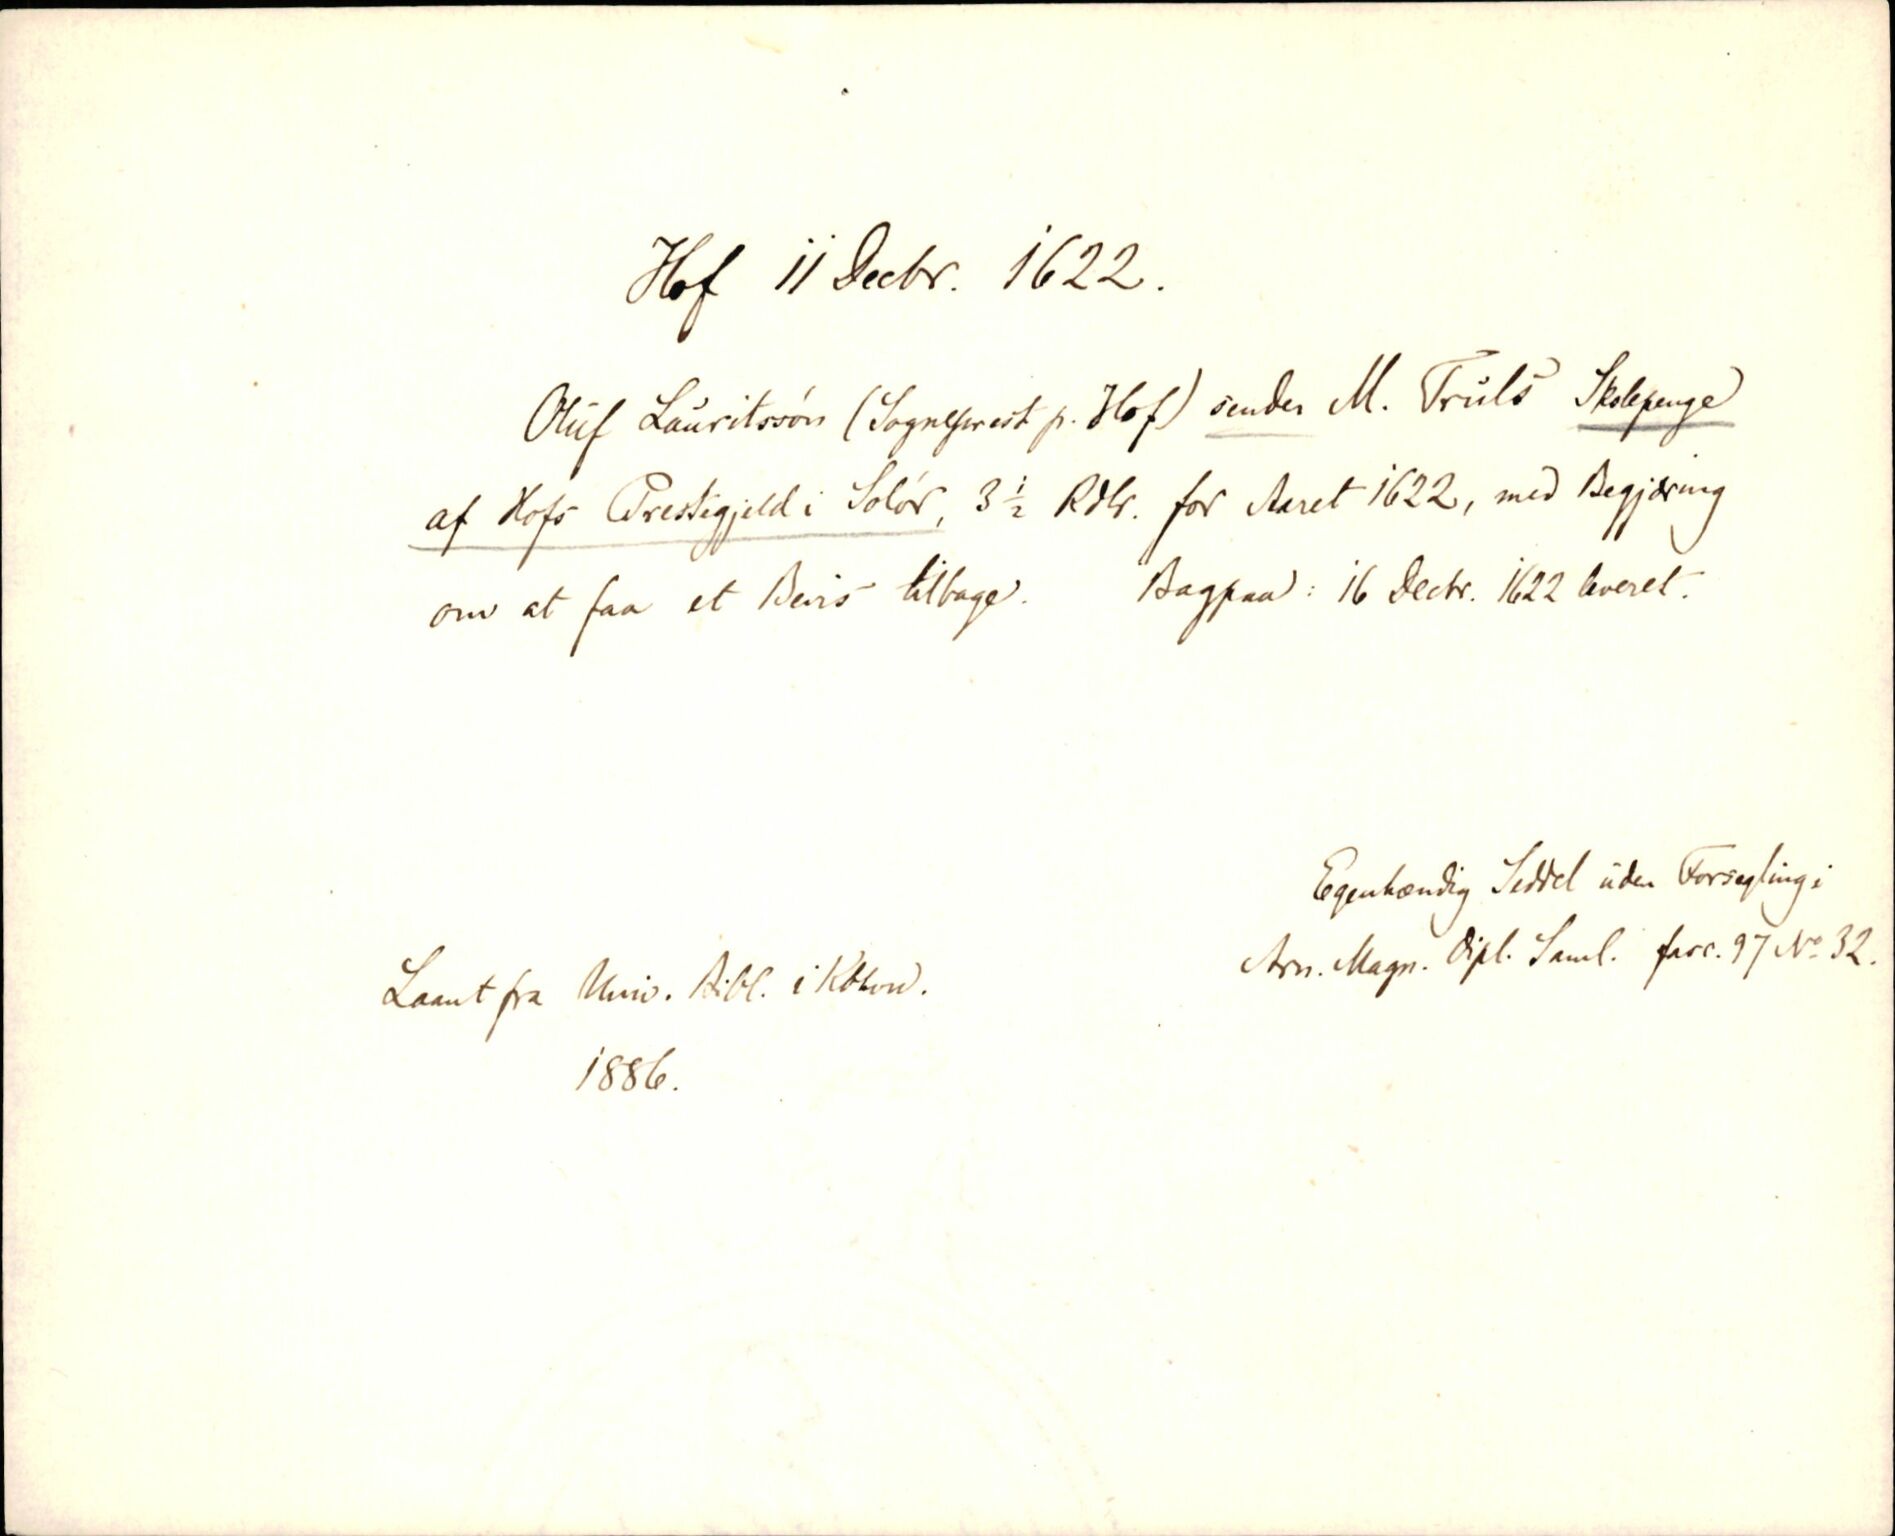 Hof 11 Decbr. 1622.
Oluf Lauritssön (Sogneprest p. Hof) sender M. Truls Skolepenge
af Hofs Prestegjeld i Solör, 3 1/2 Rdlr. for Aaret 1622, med Begjæring
om at faa et Bevis tilbage. Bagpaa: 16 Decbr. 1622 leveret.
Egenhændig Seddel uden Forsegling i
Arn. Magn. Dipl. Saml. fasc. 97 No 32.
Laant fra Univ. Bibl. i Kbhvn.
1886.